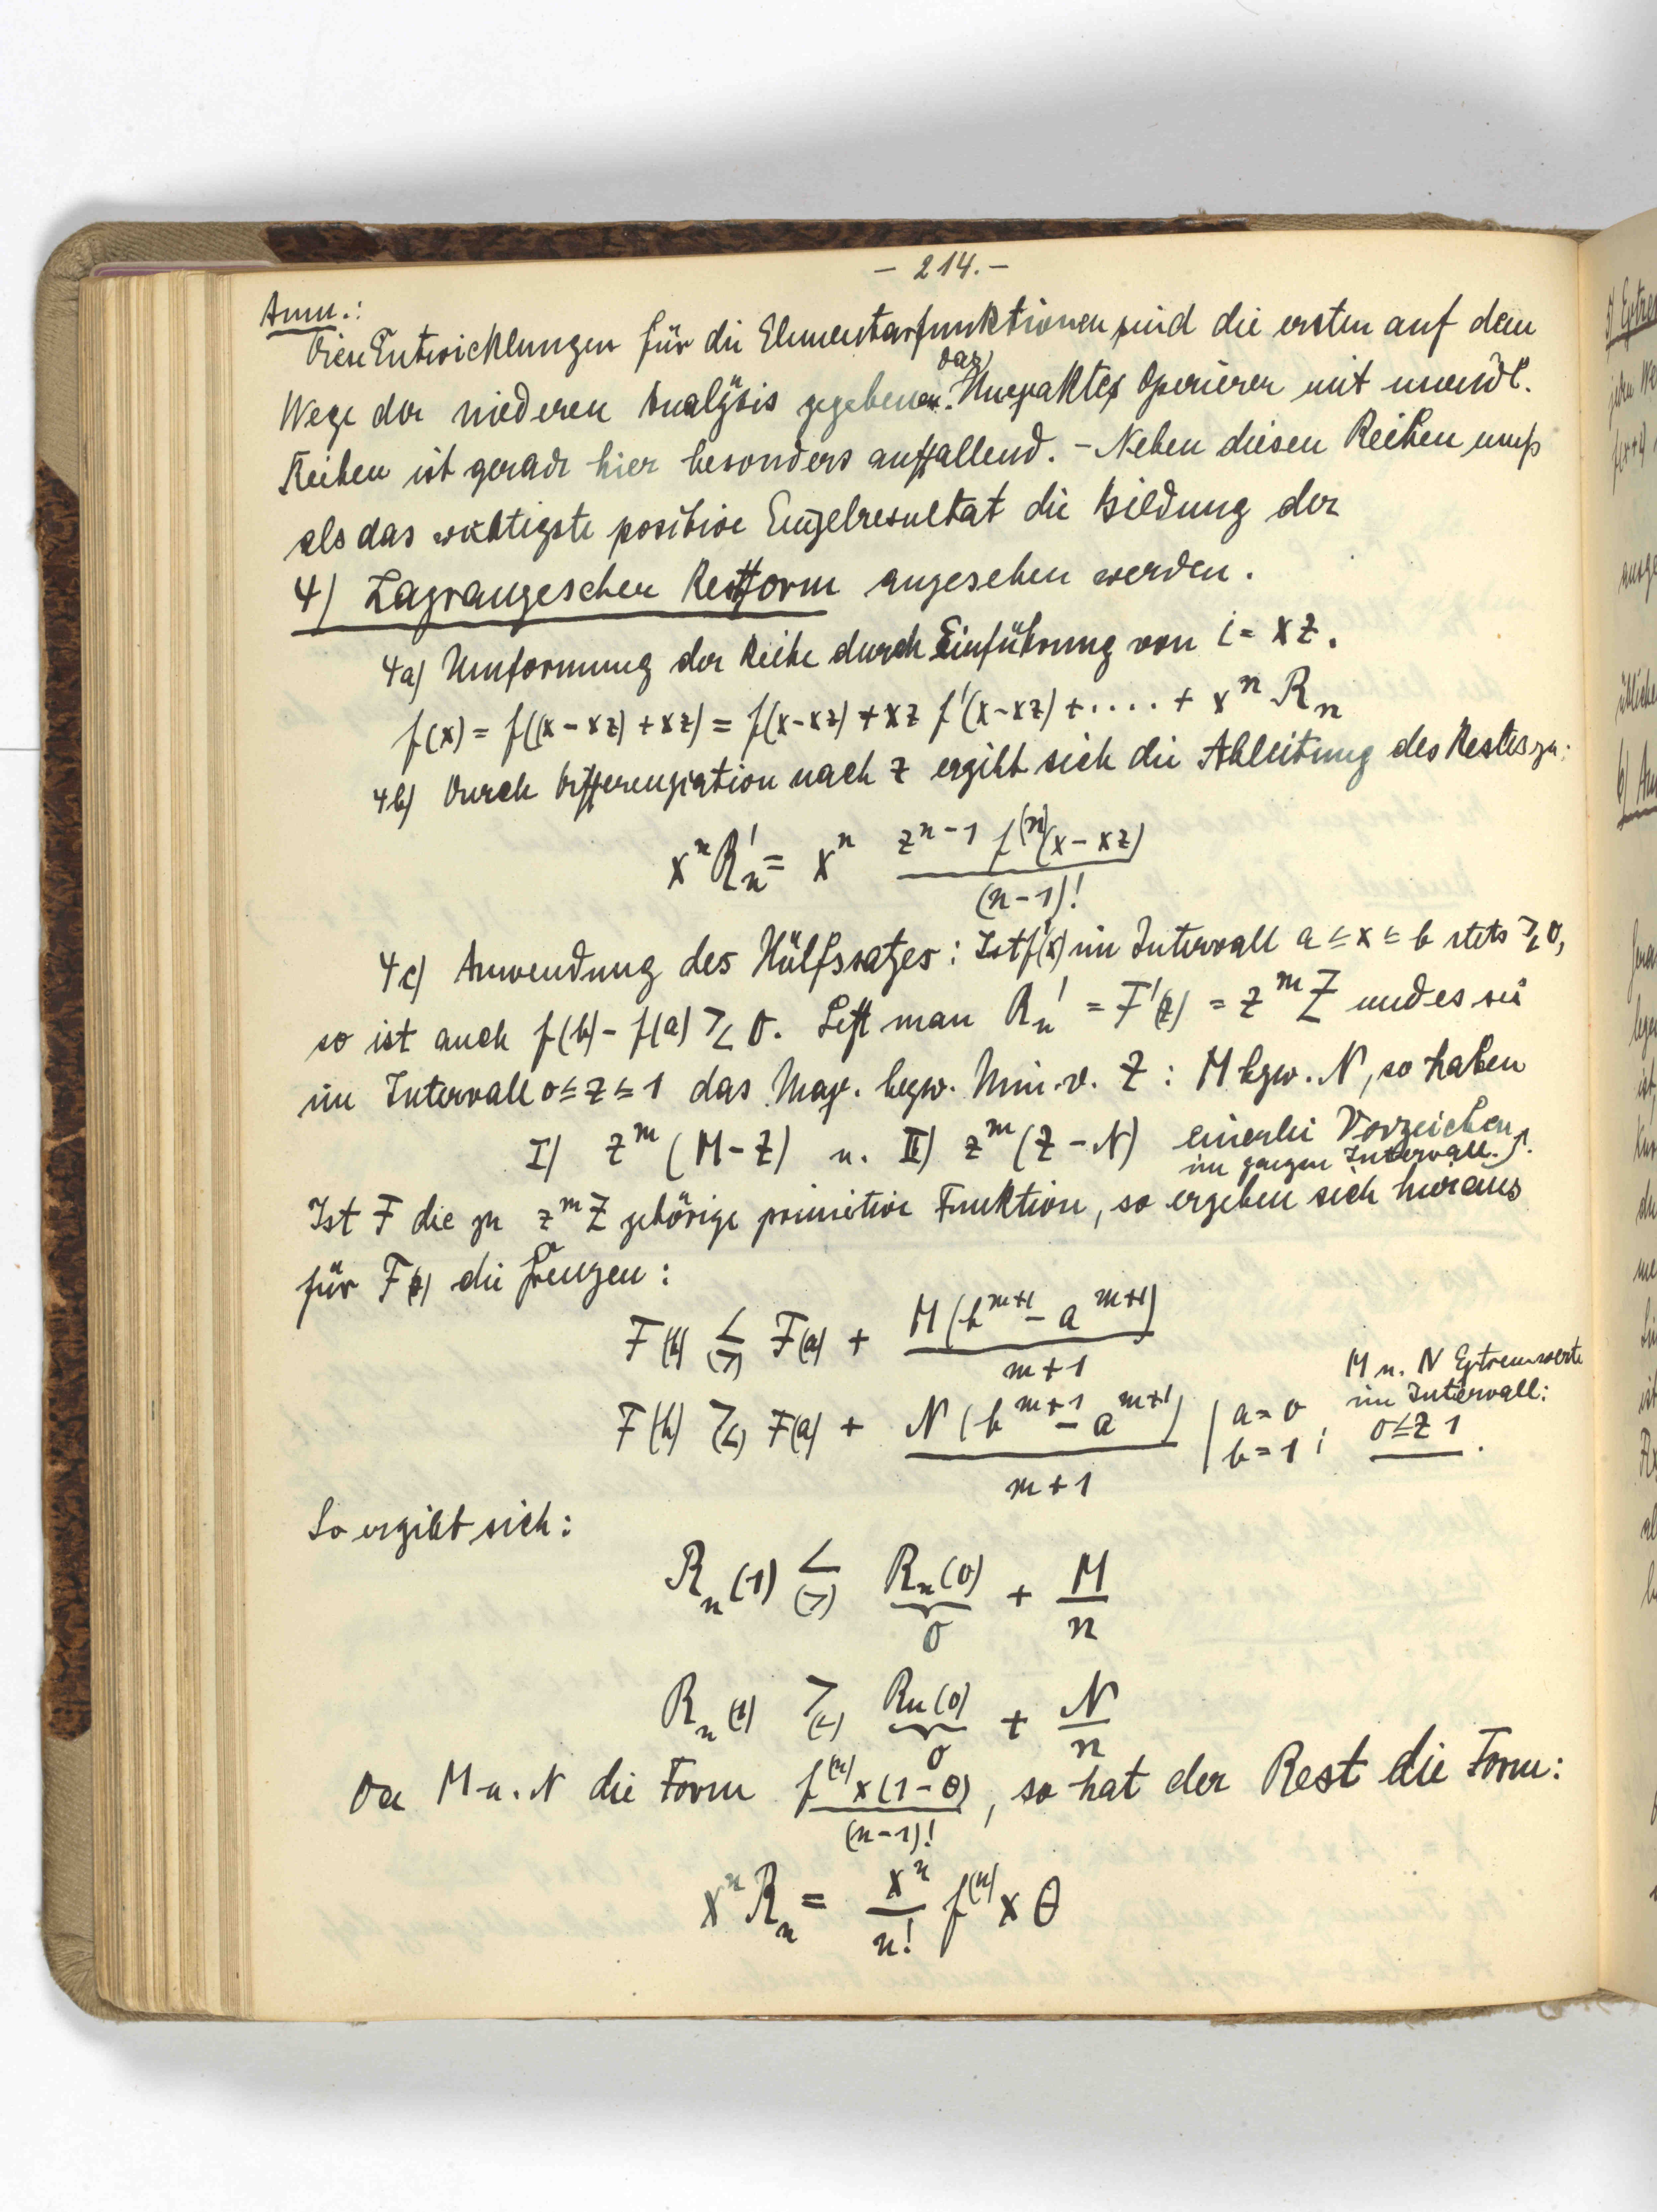 - 214. -
Anm.:
Diese Entwicklungen für die Elementarfunktionen sind die ersten auf dem
Wege der niederen Analysis gegebenen. Das Unexaktes Operieren mit unendl.
Reihen ist gerade hier besonders auffallend. - Neben diesen Reihen muß
als das wichtigste positive Einzelresultat die Bildung der
4) Lagrangeschen Restform angesehen werden.
4a) Umformung der Reihe durch Einführung von i = xz.
f(x) = f((x - xz) + xz) = f(x-xz) + xz f'(x-xz) + .... + xⁿ Rₙ
4b) Durch Differenziation nach z ergibt sich die Ableitung des Restes zu:
xⁿ Rₙ' = xⁿ (zⁿ⁻¹ f⁽ⁿ⁾(x-xz))/((n-1)!)
4c) Anwendung des Hülfssatzes: Ist f'(x) im Intervall a ≤ x ≤ b stets ≥ 0,
so ist auch f(b) - f(a) ≥ 0. Setzt man Rₙ' = F'(z) = zᵐ Z und es sei
im Intervall 0 ≤ z ≤ 1 das Max. bezw. Min. v. Z : M bzw. N, so haben
I) zᵐ (M - Z) u. II) zᵐ (Z - N) einerlei Vorzeichen
im ganzen Intervall.
Ist F die zu zᵐ Z gehörige primitive Funktion, so ergeben sich hieraus
für F(z) die Grenzen:
F(b) ≤ (≥) F(a) + (M (bᵐ⁺¹ - aᵐ⁺¹))/(m+1)
M u. N Extremwerte
im Intervall:
F(b) ≥ (≤) F(a) + (N (bᵐ⁺¹ - aᵐ⁺¹))/(m+1) | a = 0 b = 1 ; 0 ≤ z 1.
So ergibt sich:
Rₙ(1) ≤ (≥) Rₙ(0) + M/n
0
Rₙ(1) ≥ (≤) Rₙ(0) + N/n
0
Da M u. N die Form (f⁽ⁿ⁾ x(1-θ))/((n-1)!), so hat der Rest die Form:
xⁿ Rₙ = xⁿ/n! f⁽ⁿ⁾ x θ